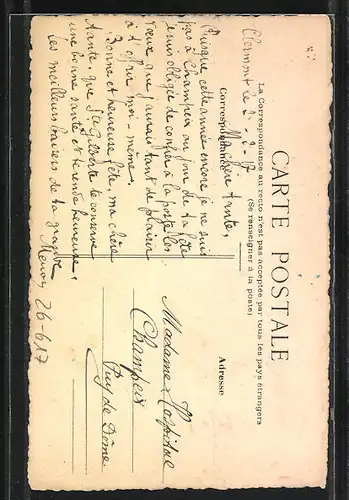 CARTE POSTALE
La Correspondance au recto n'est pas acceptée par tous les pays étrangers
(Se renseigner à la poste)
Correspondance
Adresse
Clermont le 2 - 2 - 17
Ma chère tante,
Puisque cette année encore je ne suis
pas à Champeix au jour de ta fête
je suis obligée de confier à la poste les
vœux que j'aurais tant de plaisir
à t'offrir moi-même.
Bonne et heureuse fête, ma chère
tante que Ste Gilberte te conserve
une bonne santé et te rende heureuse,
les meilleurs baisers de ta grande
26-6-17
Madame
Champeix
Puy de Dôme